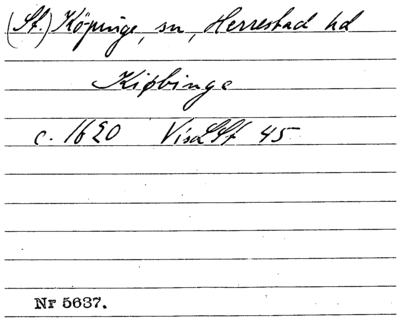 (St.) Köpinge, sn, Herrestad hd
Kiøbinge
c. 1620 VisLSt 45
Nr 5637.